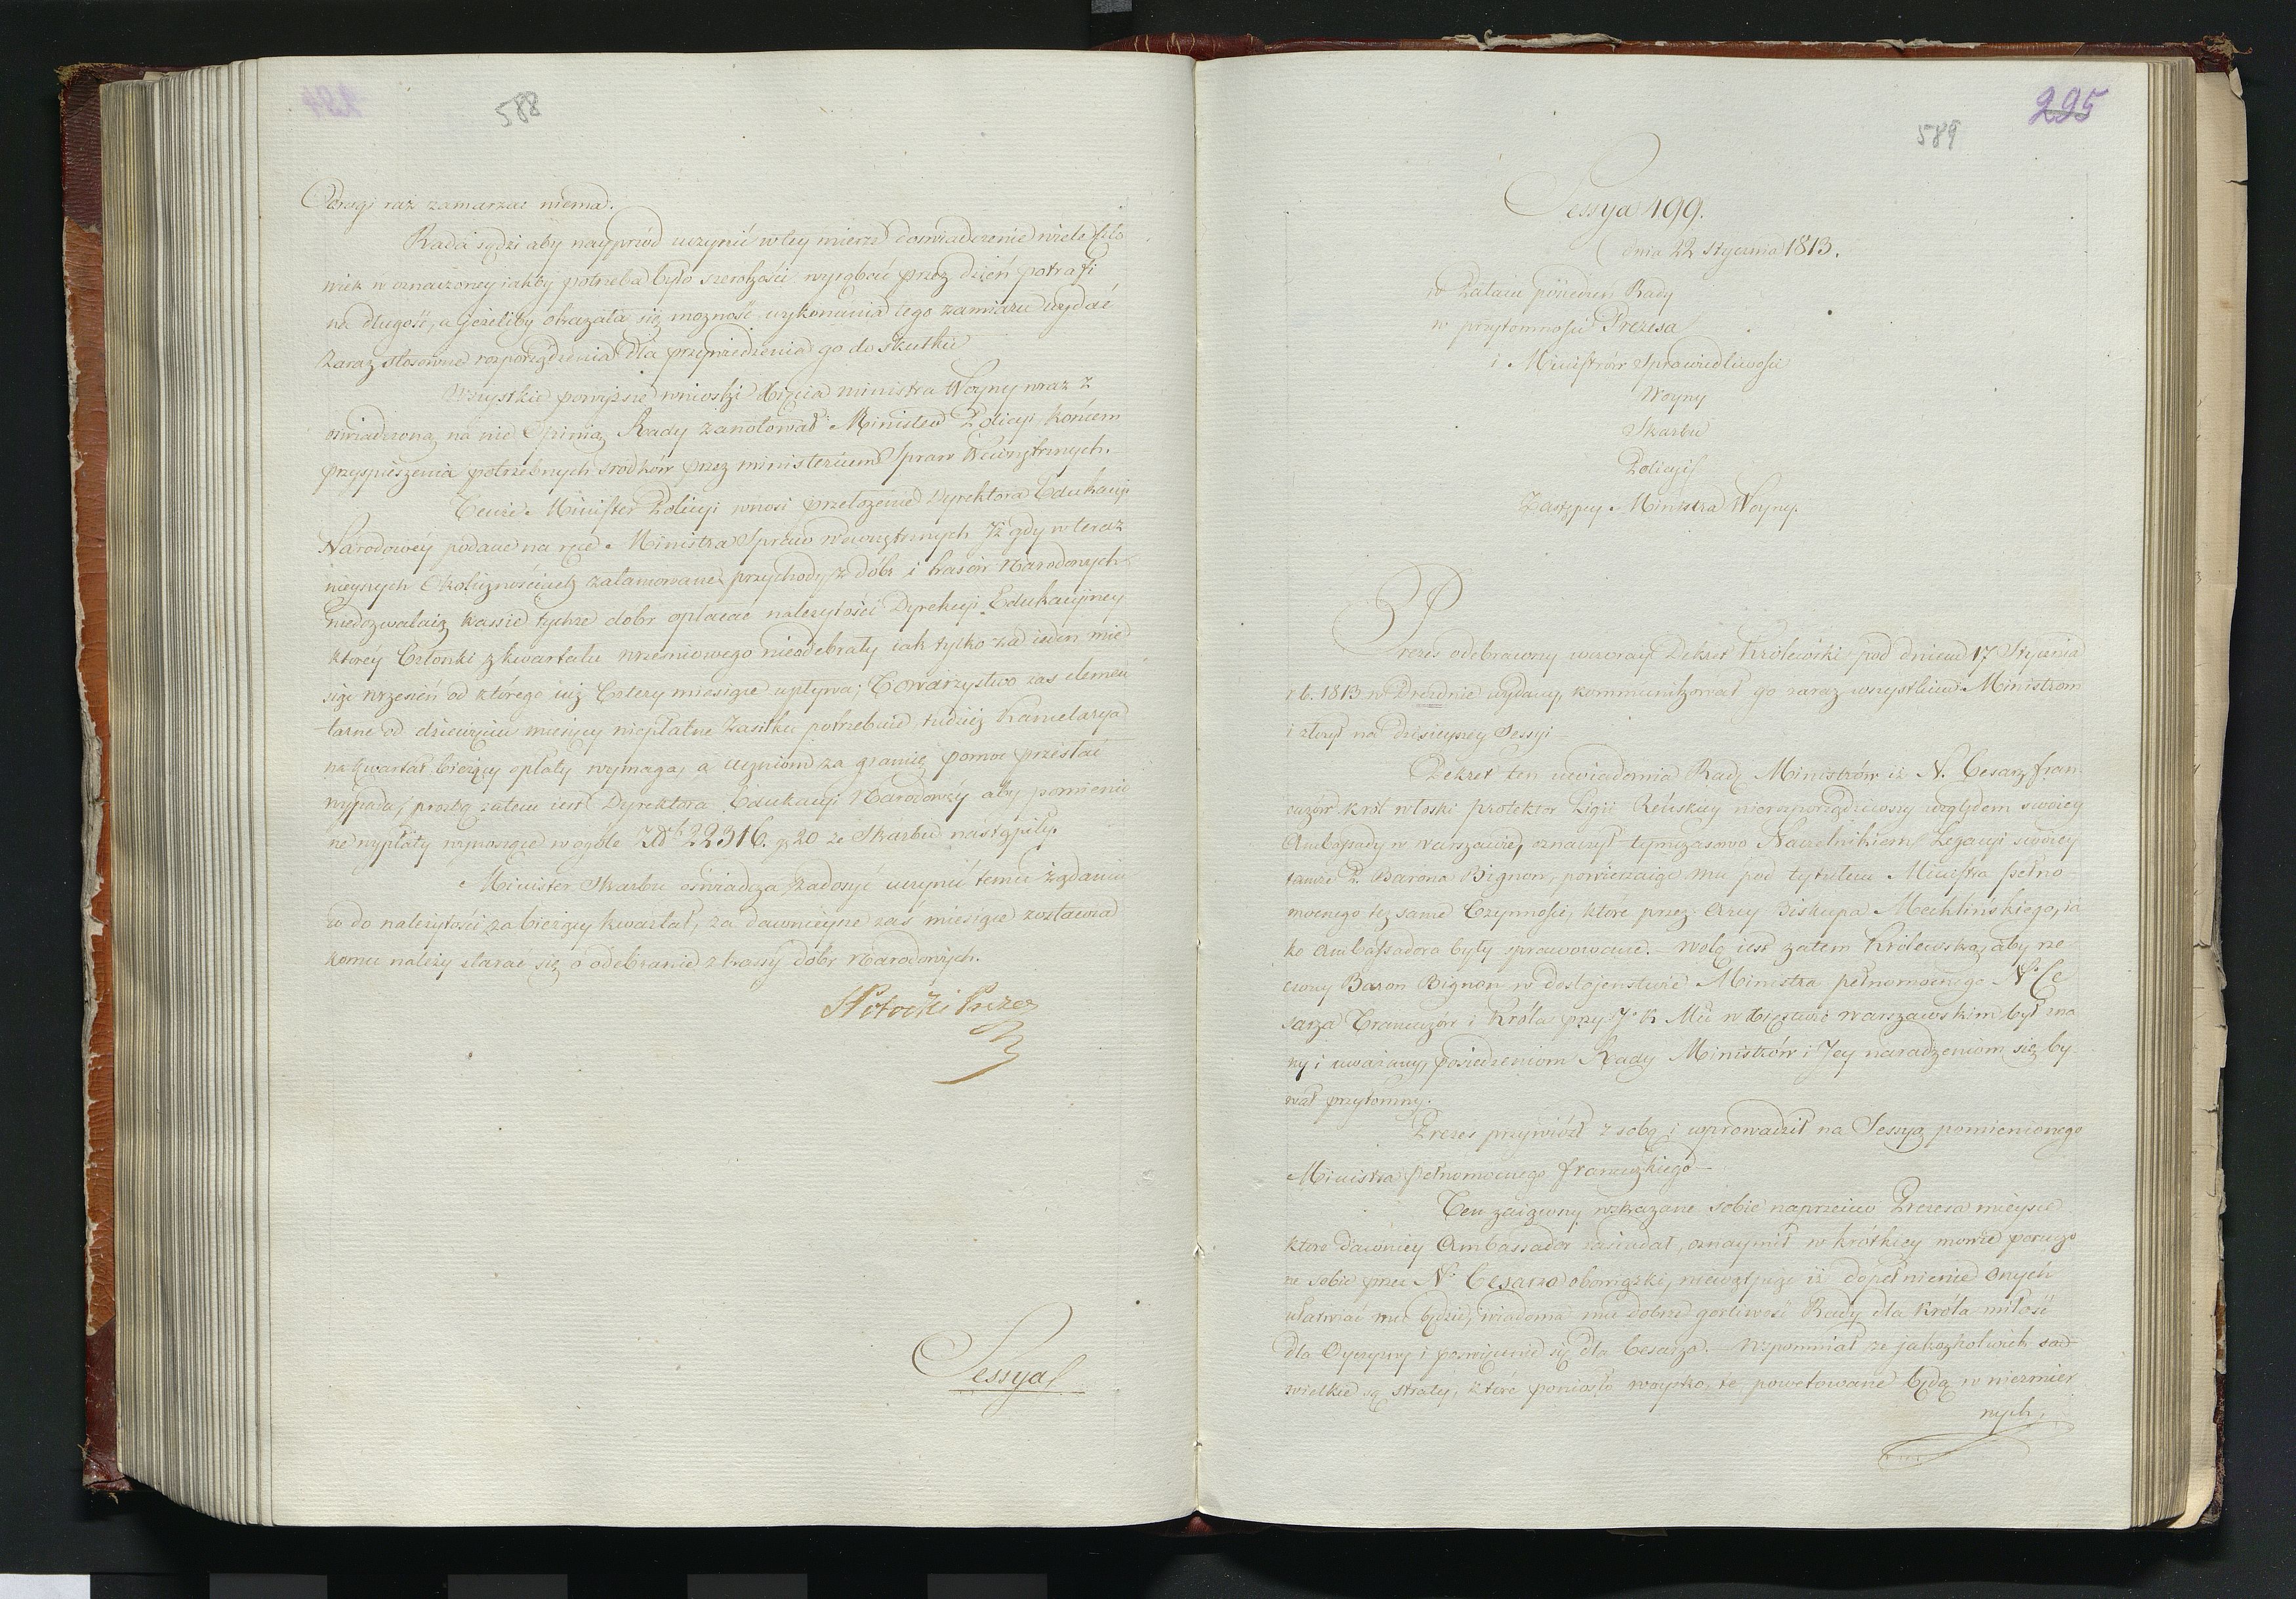 588
drugi raz zamarzać niema.
Rada sądzi aby nayprzód uczynić w tey mierze doświadczenie wiele czło
wiek w oznaczoney iakby potrzeba było szerokości wyrąbać przez dzień potrafi
na długość, a jeżeliby okazała się możność wykonania tego zamiaru wydać
zaraz stosowne rozporządzenia dla przywiedzenia go do skutku
Wszystkie powyższe wnioski Xięcia Ministra Woyny wraz z
oświadczoną na nie Opinią Rady zanotował Minister Policyi końcem
przyspieszenia potrzebnych srodków przez ministerium Spraw Wewnętrznych.
Tenże Minister Policyi wnosi przełożenie Dyrektora Edukacyi
Narodowéy podane na ręce Ministra Spraw Wewnętrznych Iż gdy w teraz
nieyszych Okolicznościach zatamowane przychody z dóbr i lasów Narodowych
niedozwalaią kassie tychże dobr opłacać należytości Dyrekcyi Edukacyiney
któréy Członki z kwartału wrześniowego nieodebrały iak tylko za ieden mie
siąc wrzesień od którego iuż Cztery miesiące upływa; Towarzystwo zas elemen
tarne od dziewięciu miesięcy niepłatne Zasiłku potrzebuie tudzież Kancelarya
na kwartał bieżący opłaty wymaga, a uczniom za granicę pomoc przesłać
wypada, prozbą zatem iest Dyrektora Edukacyi Narodowéy aby pomienio
ne wypłaty wynoszące w ogóle Złł 22316. g 20 ze Skarbu nastąpiły.
Minister Skarbu oświadcza zadosyć uczynić temu żądaniu
co do należytości za bieżący kwartał, za dawnieysze zaś miesiące zostawia
komu należy starać się o odebranie z kassy dóbr Narodowych.
S Potocki Prezes
Sessya
295
589
Sessya 199.
dnia 22 Stycznia 1813.
w Pałacu posiedzeń Rady
w przytomności Prezesa
i Ministrów Sprawiedliwości
Woyny
Skarbu
Policyi
Zastępcy Ministra Woyny.
Prezes odebrawszy wczoray Dekret Królewski pod dniem 17 Stycznia
r b. 1813 w Dreznie wydany, kommunikował go zaraz wszystkim Ministrom
i złożył na dzisieyszey Sessyi
Dekret ten uwiadomia Radę Ministrów iż N. Cesarz fran
cuzów Król włoski protektor Ligii Reńskiey nierozporządziwszy względem swoiey
Ambassady w Warszawie, oznaczył tymczasowo Naczelnikiem Legacyi swoiey
tamże P. Barona Bignon, powierzaiąc mu pod tytułem Ministra pełno-
mocnego też same Czynności, które przez Arcy Biskupa Mechlińskiego, ia
ko Ambassadora były sprawowane. – wolą iest zatem Królewską, aby rze
czony Baron Bignon w dostojeństwie Ministra pełnomocnego N. Ce
sarza Francuzów i Króla przy J. K. Mci w Xięstwie Warszawskim był zna
ny i uważany, posiedzeniom Rady Ministrów i Jey naradzeniom się by
wał przytomny.
Prezes przywiózł z sobą i wprowadził na Sessyą pomienionego
Ministra pełnomocnego francuzkiego –
Ten zaiąwszy wskazane sobie naprzeciw Prezesa mieysce
które dawniey Ambassador zasiadał, oznaymił w krótkiey mowie poruczo
ne sobie przez N. Cesarza obowiązki, niewątpiąc iż dopełnienie onych
ułatwiać mu będzie, wiadoma mu dobrze gorliwość Rady dla Króla miłość
dla Oyczyzny i poswięcenie się dla Cesarza. Wspomniał że jakożkolwiek
wielkie są straty, które poniosło woysko, te powetowane będą w niezmier
nych